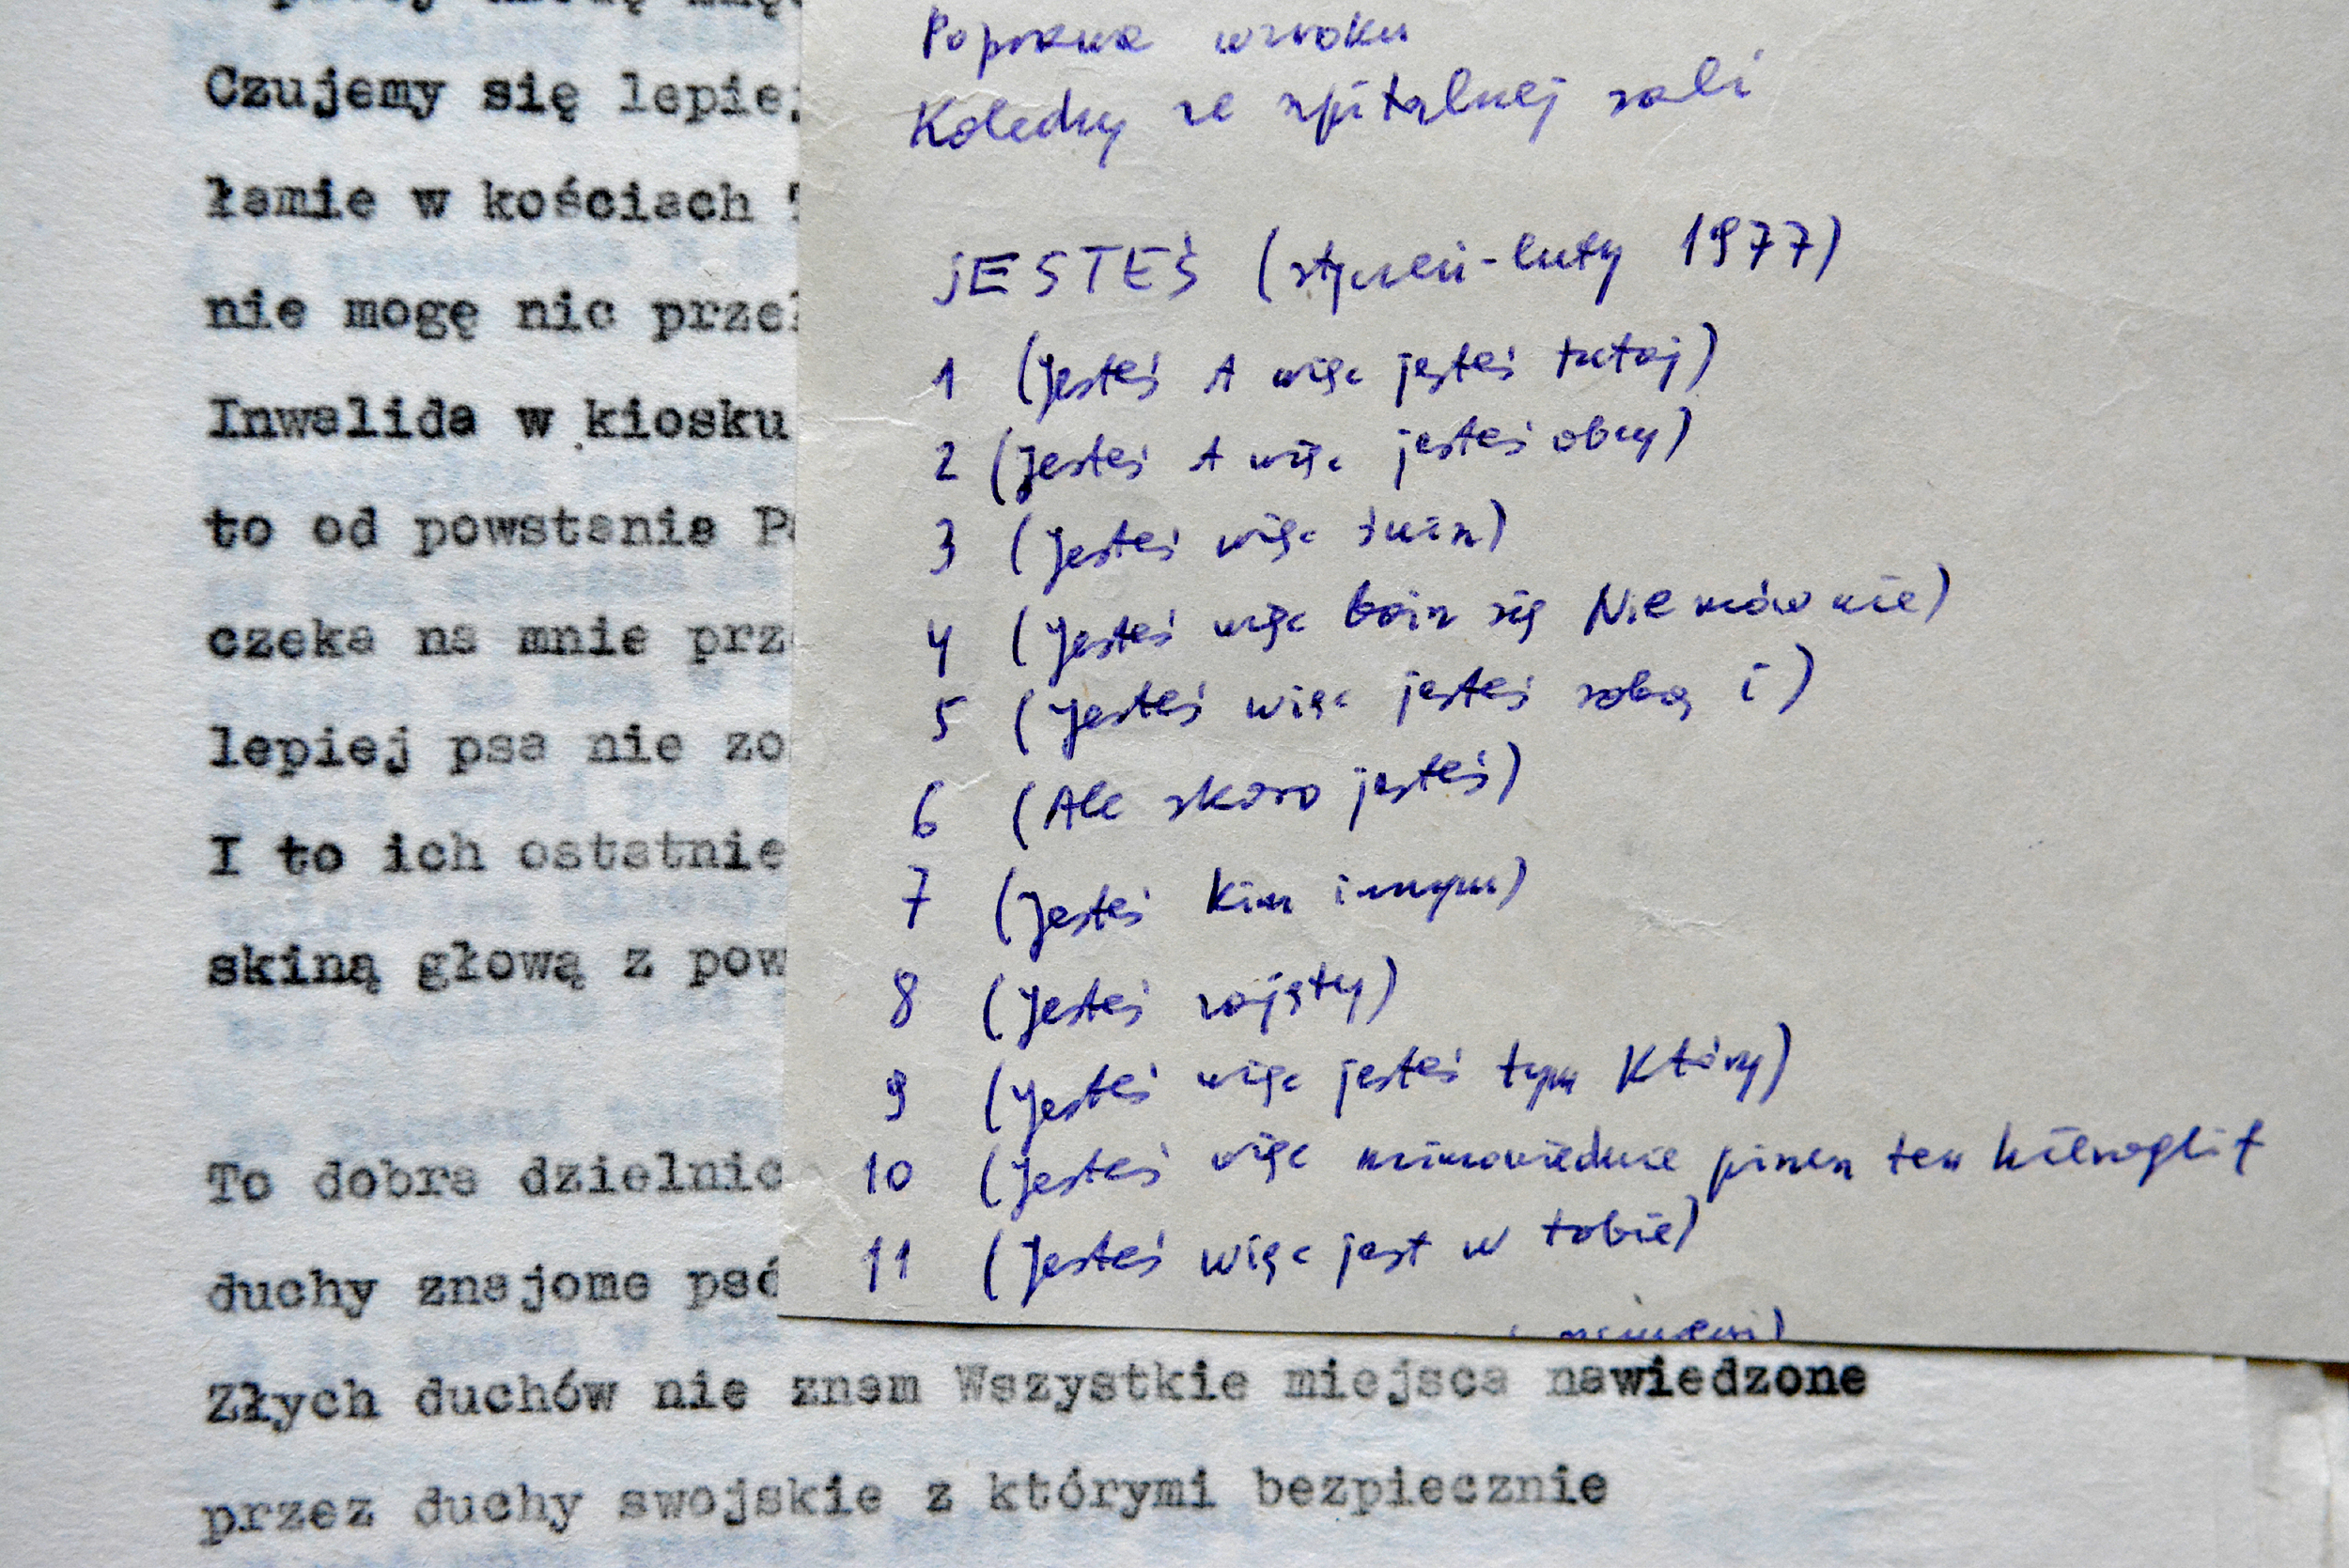 Czujemy się lepiej
łamie w kościach
nie mogę nic przeł
Inwalida w kiosku
to od powstania Pa
czeka na mnie prze
lepiej psa nie zo
I to ich ostatnie
skiną głową z pow
To dobra dzielnic
duchy znajome psó
Złych duchów nie znam Wszystkie miejsca nawiedzone
przez duchy swojskie z którymi bezpiecznie
Poprawa wzroku
Kolędy ze szpitalnej sali
JESTEŚ (styczeń-luty 1977)
1 (Jesteś A więc jesteś tutaj)
2 (Jesteś A więc jesteś obcy)
3 (Jesteś więc śnisz)
4 (Jesteś więc boisz się Nie mów nie)
5 (Jesteś więc jesteś sobą i)
6 (Ale skoro jesteś)
7 (Jesteś kim innym)
8 (Jesteś zajęty)
9 (Jesteś więc jesteś tym który)
10 (Jesteś więc mimowiednie piszesz ten hieroglif
11 (Jesteś więc jest w tobie)